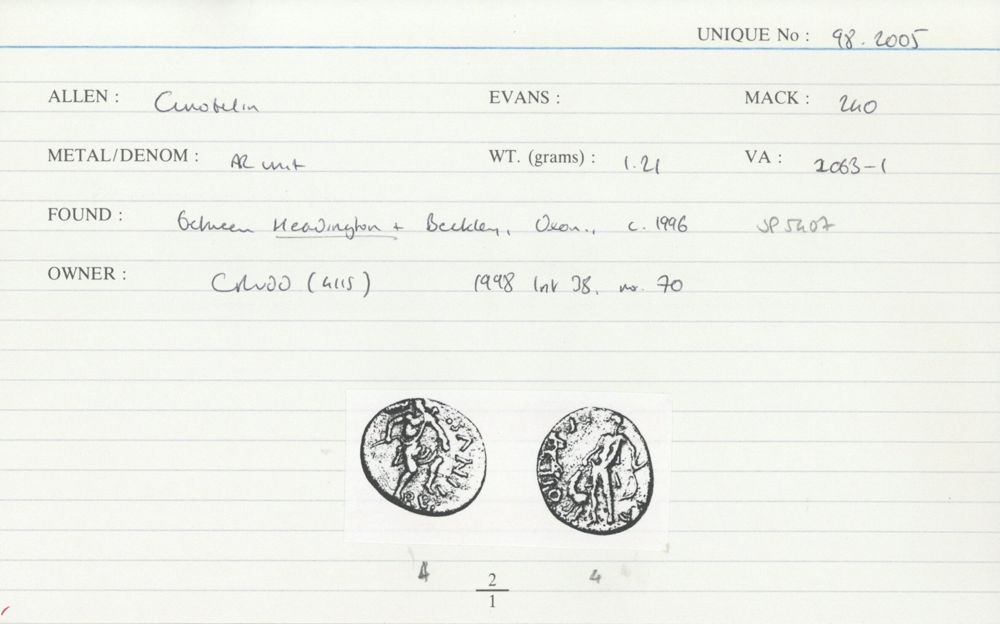 UNIQUE No : 98.2005
ALLEN : Cunobelin EVANS : MACK : 240
METAL/DENOM : AR unit WT. (grams) : 1.21 VA : 2063-1
FOUND : between Headington + Beckley, Oxon., c. 1996 SP 5407
OWNER : CR 1998 list 38, no. 70
4 2 4
1